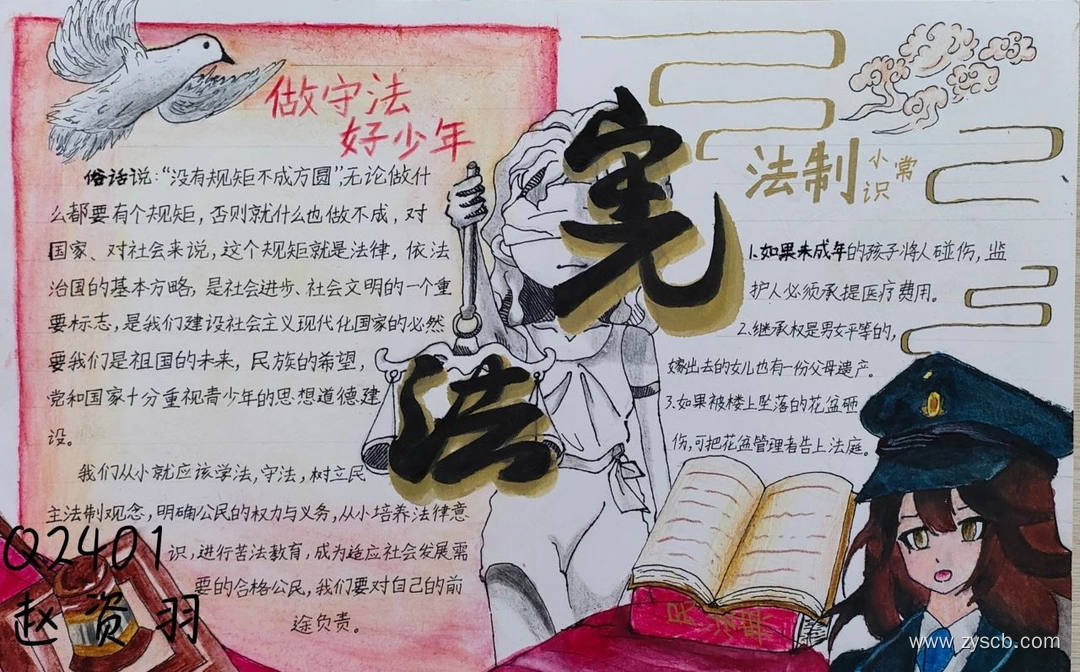 做守法
好少年
俗话说:“没有规矩不成方圆”,无论做什
么都要有个规矩,否则就什么也做不成,对
国家、对社会来说,这个规矩就是法律,依法
治国的基本方略,是社会进步、社会文明的一个重
要标志,是我们建设社会主义现代化国家的必然
要我们是祖国的未来,民族的希望,
党和国家十分重视青少年的思想道德建
设。
我们从小就应该学法,守法,树立民
主法制观念,明确公民的权力与义务,从小培养法律意
识,进行苦法教育,成为适应社会发展需
要的合格公民,我们要对自己的前
途负责。
Q2401
赵资羽
宪
法
法制小常识
1.如果未成年的孩子将人碰伤,监
护人必须承提医疗费用。
2.继承权是男女平等的,
嫁出去的女儿也有一份父母遗产。
3.如果被楼上坠落的花盆砸
伤,可把花盆管理者告上法庭。
民法典
www.zyscb.com